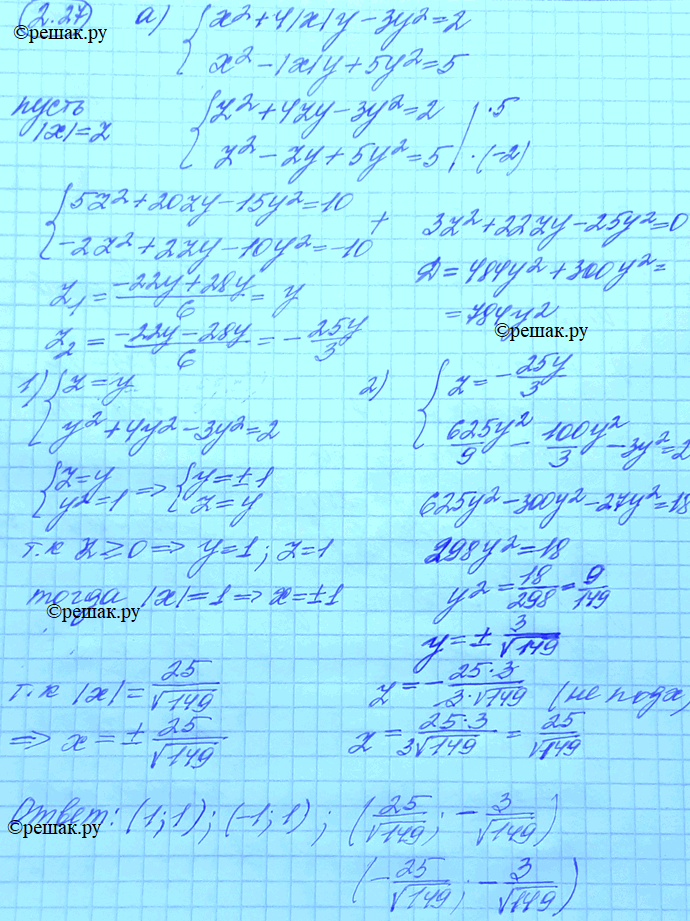 (2.27) а) { x² + 4|x|y - 3y² = 2
©решак.ру
x² - |x|y + 5y² = 5
пусть |x| = z
{ z² + 4zy - 3y² = 2 | ·5
z² - zy + 5y² = 5 | ·(-2)
{ 5z² + 20zy - 15y² = 10
-2z² + 2zy - 10y² = -10 +
3z² + 22zy - 25y² = 0
D = 484y² + 300y² =
= 784y²
©решак.ру
z₁ = (-22y + 28y)/6 = y
z₂ = (-22y - 28y)/6 = -25y/3
1) { z = y
y² + 4y² - 3y² = 2
{ z = y
y² = 1 => { y = ±1
z = y
т.к z ≥ 0 => y = 1; z = 1
тогда |x| = 1 => x = ±1
©решак.ру
2) { z = -25y/3
625y²/9 - 100y²/3 - 3y² = 2
625y² - 300y² - 27y² = 18
298y² = 18
y² = 18/298 = 9/149
y = ± 3/√149
z = - 25·3/3·√149 (не подх)
z = 25·3/3√149 = 25/√149
т.к |x| = 25/√149
=> x = ± 25/√149
Ответ: (1; 1); (-1; 1); (25/√149; - 3/√149)
©решак.ру
(-25/√149; - 3/√149)